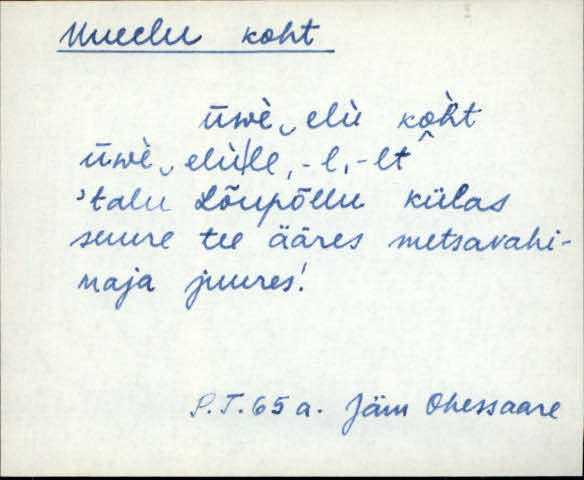 Uueelu koht
ūwè‿elù kòh̀t
ūwè‿elù/le, -l, -lt
'talu Lõupõllu külas
suure tee ääres metsavahi-
maja juures!
P.T. 65 a. Jäm Ohessaare